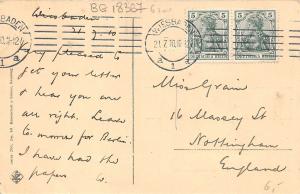 BG 18367
Wiesbaden
21.7.10
Very pleased to
get your letter
& hear you are
all right. Leave
to morrow for Berlin.
I have had the
papers
WIESBADEN
21.7.10
1
a
5
5
DEUTSCHES REICH
DEUTSCHES REICH
Miss Grain
16 Massey St
Nottingham
England
6,-